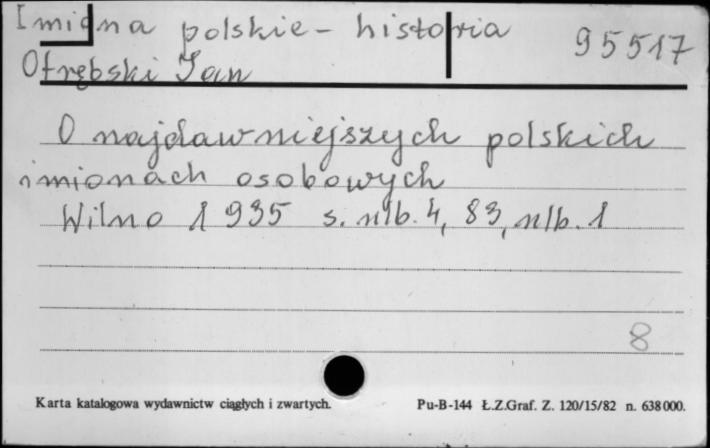 Imiona polskie - historia 95517
Otrębski Jan
O najdawniejszych polskich
imionach osobowych
Wilno 1935 s. nlb. 4, 83, nlb. 1
8
Karta katalogowa wydawnictw ciągłych i zwartych. Pu-B-144 Ł.Z.Graf. Z. 120/15/82 n. 638000.